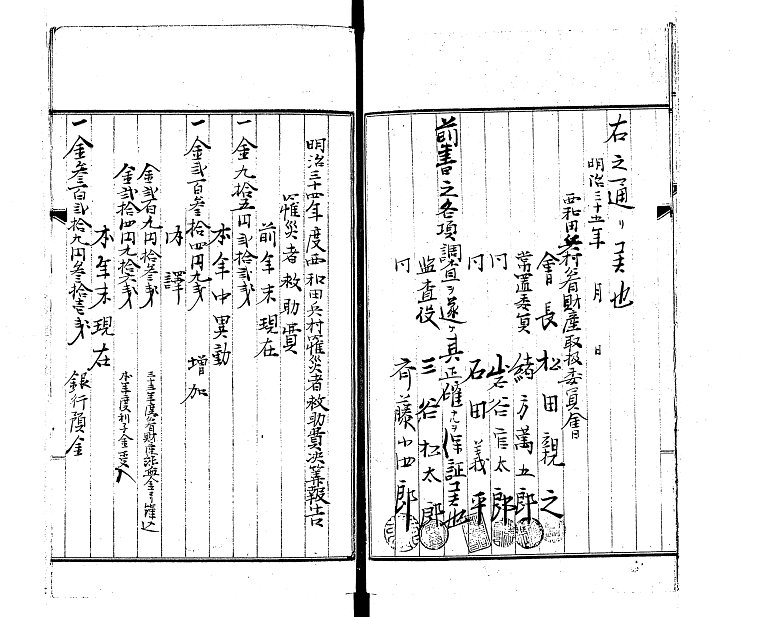 右之通リ候也
明治三十五年 月 日
西和田兵村公有財産取扱委員会
会長 松田親之
常置委員 緒方萬五郎
同 岩谷官太郎
同 石田義平
前書之各項調査ヲ遂ケ其正確ナルヲ保証候也
監査役 三谷松太郎
同 斉藤小四郎
明治三十四年度西和田兵村罹災者救助費決算報告
罹災者救助費
前年末現在
一金九拾五円弐拾弐銭
本年中異動
一金弐百参拾四円九銭 増加
内譯
金弐百九円拾参銭 三十五年度公有財産ヨリ繰込
金弐拾四円九拾六銭 本年度利子金受入
本年末現在
一金参百弐拾九円参拾壱銭 銀行預金